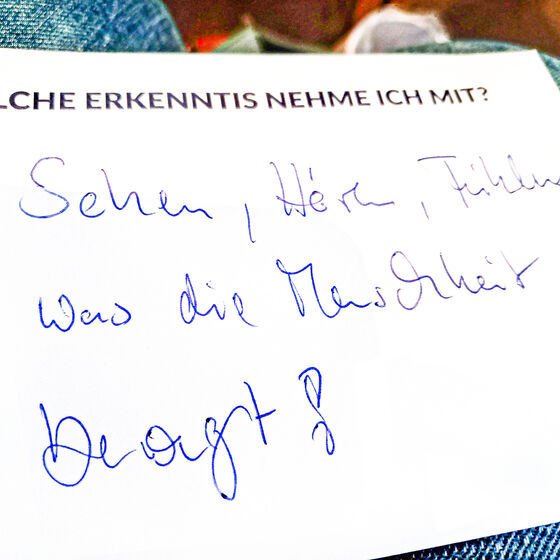 LCHE ERKENNTIS NEHME ICH MIT?
Sehen, Hören, Fühlen
was die Menschheit
bewegt!